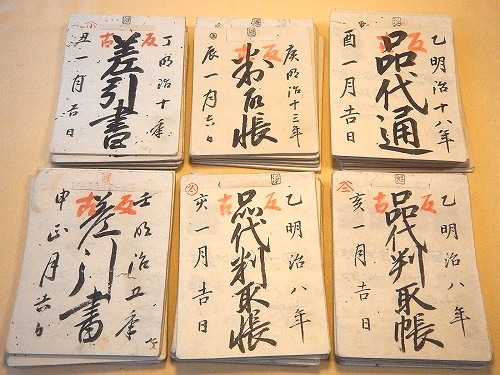 乙明治十八年
反古
品代通
酉一月吉日
庚明治十三年
反古
判取帳
辰一月吉日
丁明治十年
反古
差引書
丑一月吉日
乙明治八年
反古
品代判取帳
亥一月吉日
乙明治八年
反古
品代判取帳
亥一月吉日
壬明治五年
反古
差引書
申正月吉日